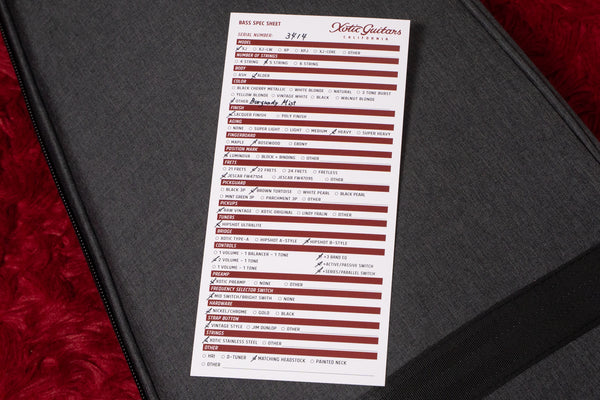 BASS SPEC SHEET
Xotic Guitars
CALIFORNIA
SERIAL NUMBER: 3414
MODEL
XJ XJ-LW XP XPJ XJ-CORE OTHER
NUMBER OF STRINGS
4 STRING 5 STRING 6 STRING
BODY
ASH ALDER
COLOR
BLACK CHERRY METALLIC WHITE BLONDE NATURAL 3 TONE BURST
YELLOW BLONDE VINTAGE WHITE BLACK WALNUT BLONDE
OTHER Burgundy Mist
FINISH
LACQUER FINISH POLY FINISH
AGING
NONE SUPER LIGHT LIGHT MEDIUM HEAVY SUPER HEAVY
FINGERBOARD
MAPLE ROSEWOOD EBONY
POSITION MARK
LUMINOUS BLOCK + BINDING OTHER
FRETS
21 FRETS 22 FRETS 24 FRETS FRETLESS
JESCAR FW47104 JESCAR FW47095 OTHER
PICKGUARD
BLACK 3P BROWN TORTOISE WHITE PEARL BLACK PEARL
MINT GREEN 3P PARCHMENT 3P OTHER
PICKUPS
RAW VINTAGE XOTIC ORIGINAL LINDY FRALIN OTHER
TUNERS
HIPSHOT ULTRALITE
BRIDGE
XOTIC TYPE-A HIPSHOT A-STYLE HIPSHOT B-STYLE
CONTROLS
1 VOLUME - 1 BALANCER - 1 TONE +3 BAND EQ
2 VOLUME - 1 TONE +ACTIVE/PASSIVE SWITCH
1 VOLUME - 1 TONE +SERIES/PARALLEL SWITCH
PREAMP
XOTIC PREAMP NONE OTHER
FREQUENCY SELECTOR SWITCH
MID SWITCH/BRIGHT SWITH NONE
HARDWARE
NICKEL/CHROME GOLD BLACK
STRAP BUTTON
VINTAGE STYLE JIM DUNLOP OTHER
STRINGS
XOTIC STAINLESS STEEL OTHER
OTHER
HRI D-TUNER MATCHING HEADSTOCK PAINTED NECK
OTHER